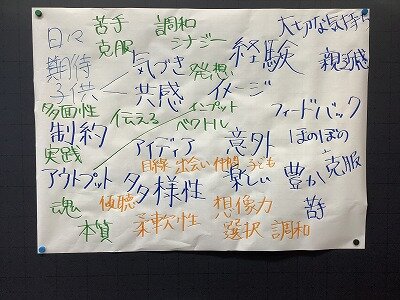 苦手 調和 大切な気持ち
日々 克服 シナジー
期待 気づき 発想 経験 親近感
子供 共感 イメージ
多面性 伝える インプット フィードバック
制約 ベクトル
実践 アイディア 意外 ほのぼの
目線 出会い 仲間 子ども
アウトプット 多様性 楽しい 豊か 克服
魂 傾聴 想像力 苦手
本質 柔軟性 選択 調和